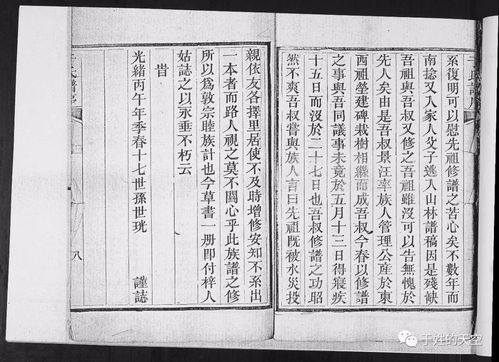 系復明可以慰先祖修譜之苦心矣不數年而
南捻又入家人父子逃入山林譜稿因是殘缺
吾祖與吾叔又修之吾祖雖沒可以告無愧於
先人矣由是吾叔景汪率族人管理公產於東
西祖塋建碑栽樹相繼而成吾叔今春以修譜
之事與吾同議事未竟於五月十三日得瘷疾
十五日而沒於二十七日也吾叔修譜之功昭
然不爽吾嘗與族人言曰先祖既被水災投
親依友各擇里居使不及時增修安知不系出
一本者而路人視之莫不關心乎此族譜之修
所以為敦宗睦族計也今草書一册即付梓人
姑誌之以永垂不朽云
旹
光緒丙午年季春十七世孫世珖 謹誌
八
于姓的天空